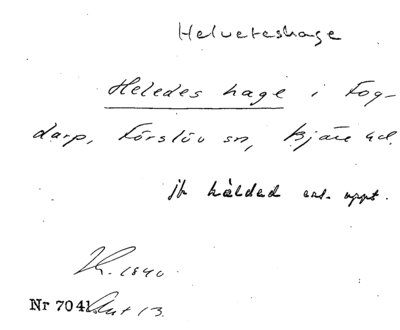 Helveteshage
Heledes hage i Fog-
darp, Förslöv sn, Bjäre hd.
jfr håldad enl. uppt.
1840.
Nr 7041 13.